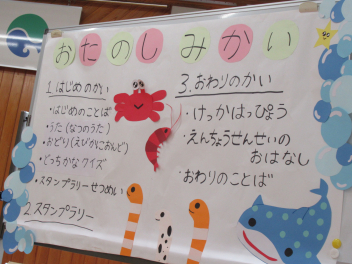 おたのしみかい
1.はじめのかい
・はじめのことば
・うた(なつのうた)
・おどり(えびかにおんど)
・どっちかなクイズ
・スタンプラリーせつめい
2.スタンプラリー
3.おわりのかい
・けっかはっぴょう
・えんちょうせんせいの
おはなし
・おわりのことば